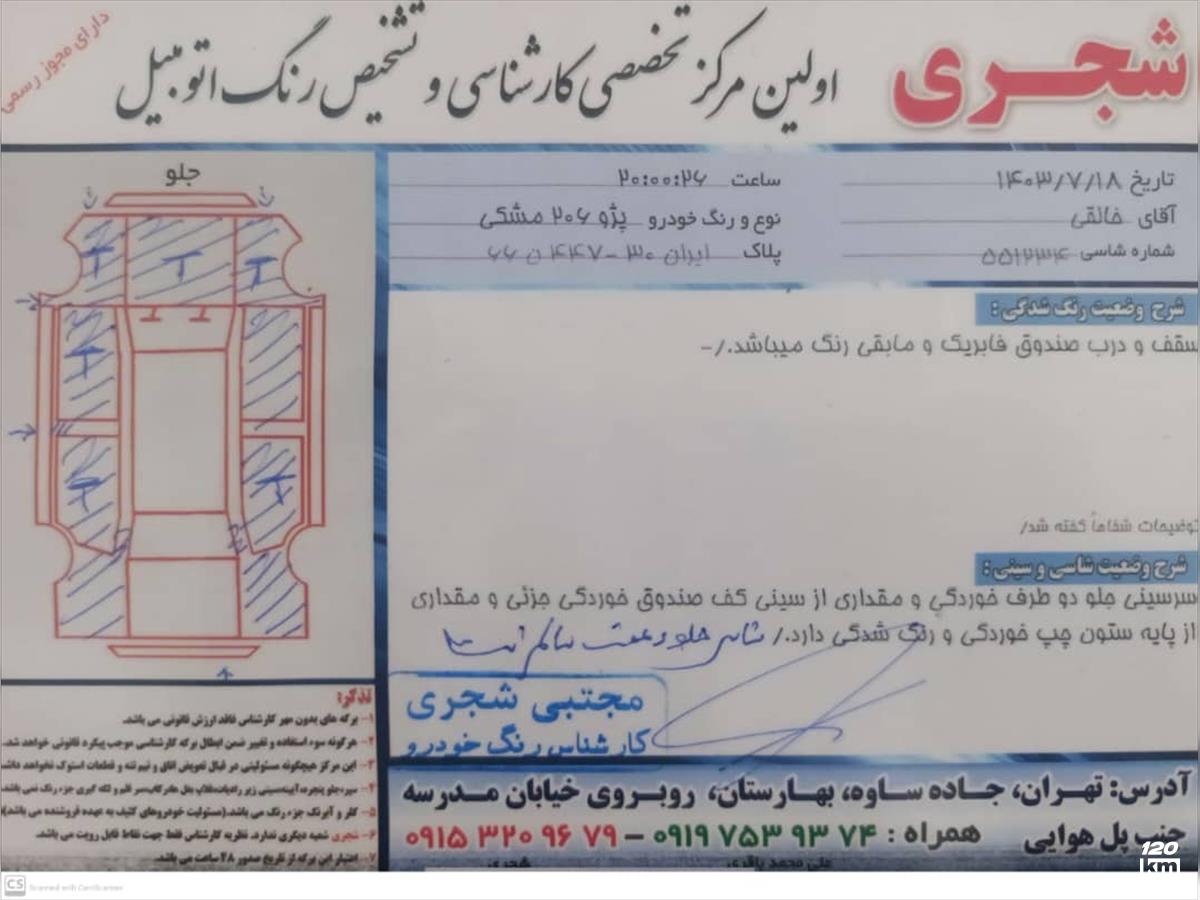 شجری
اولین مرکز تخصصی کارشناسی و تشخیص رنگ اتومبیل
دارای مجوز رسمی
تاریخ ۱۴۰۳/۷/۱۸
ساعت ۲۰:۰۰:۲۶
آقای خالقی
نوع و رنگ خودرو پژو ۲۰۶ مشکی
شماره شاسی ۵۵۱۲۳۴
پلاک ایران ۳۰ - ۴۴۷ ن ۶۶
شرح وضعیت رنگ شدگی :
سقف و درب صندوق فابریک و مابقی رنگ میباشد./-
توضیحات شفاهاً گفته شد/
شرح وضعیت شاسی و سینی :
سرسینی جلو دو طرف خوردگی و مقداری از سینی کف صندوق خوردگی جزئی و مقداری
از پایه ستون چپ خوردگی و رنگ شدگی دارد./ شاسی جلو و عقب سالم است
مجتبی شجری
کارشناس رنگ خودرو
جلو
T T T
T
T T
تذکر:
۱- برگه های بدون مهر کارشناس فاقد ارزش قانونی می باشد.
۲- هرگونه سوء استفاده و تغییر ضمن ابطال برگه کارشناسی موجب پیگرد قانونی خواهد شد.
۳- این مرکز هیچگونه مسئولیتی در قبال تعویض اتاق و نیم تنه و قطعات استوک نخواهد داشت.
۵- کلر و آبرنگ جزء رنگ می باشد.(مسئولیت خودروهای کثیف به عهده فروشنده می باشد)
۶- شجری شعبه دیگری ندارد. نظریه کارشناس فقط جهت نقاط قابل رویت می باشد.
۷- اعتبار این برگه از تاریخ صدور ۴۸ ساعت می باشد.
آدرس: تهران، جاده ساوه، بهارستان، روبروی خیابان مدرسه
جنب پل هوایی
همراه : ۰۹۱۹ ۷۵۳ ۹۳ ۷۴ – ۰۹۱۵ ۳۲۰ ۹۶ ۷۹
علی محمد باقری
شجری
120
km
CS Scanned with CamScanner